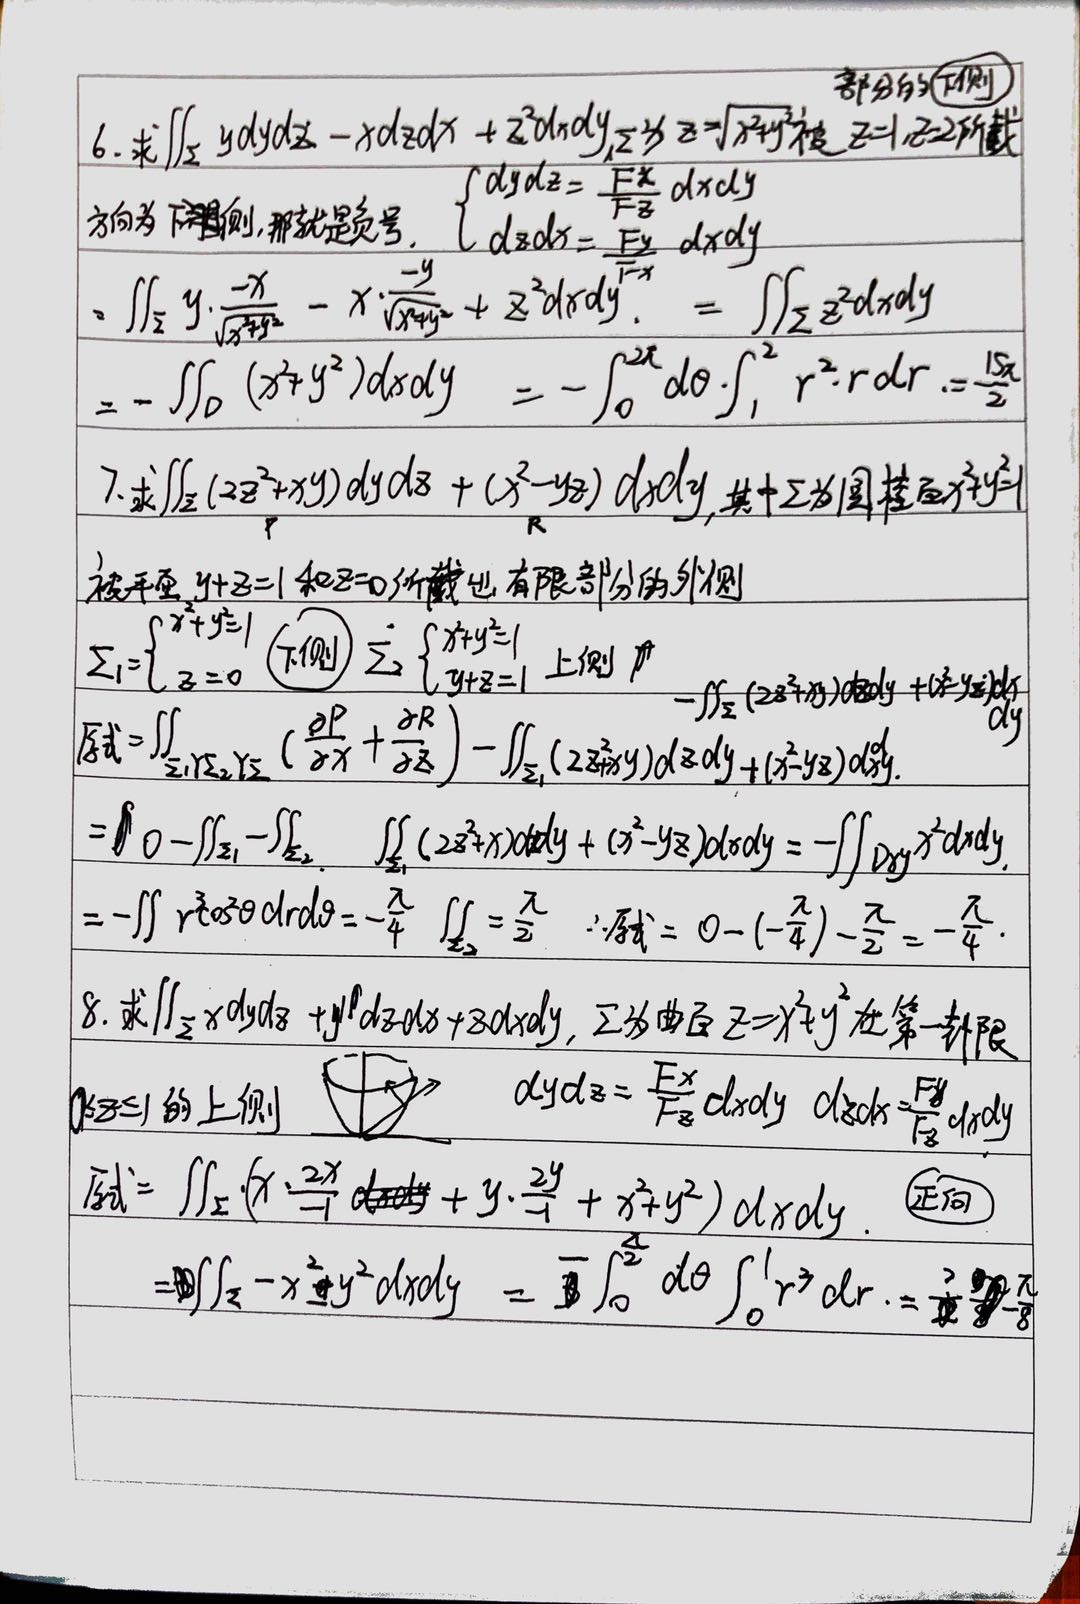 部分的下侧
6. 求∬_Σ ydydz - xdzdx + z²dxdy, Σ为 z=√(x²+y²) 被 z=1, z=2所截
方向为下侧, 那就是负号. { dydz = Fx/Fz dxdy
dzdx = Fy/Fz dxdy
= ∬_Σ y·(-x)/√(x²+y²) - x·(-y)/√(x²+y²) + z²dxdy. = ∬_Σ z²dxdy
= -∬_D (x²+y²)dxdy = -∫_0^{2π} dθ·∫_1^2 r²·r dr. = 15π/2
7. 求∬_Σ (2z²+xy)dydz + (x²-yz)dxdy, 其中Σ为圆柱面x²+y²=1
P R
被平面 y+z=1 和z=0所截出有限部分的外侧
Σ₁={ x²+y²=1 z=0 下侧 Σ₂ { x²+y²=1 y+z=1 上侧
-∬_Σ (2z²+xy)dzdy + (x²-yz)dxdy
原式=∬_{Σ₁YΣ₂YΣ} (∂P/∂x + ∂R/∂z) - ∬_{Σ₁} (2z²+xy)dzdy + (x²-yz)dxdy.
= 0 - ∬_{Σ₁} - ∬_{Σ₂}. ∬_{Σ₁} (2z²+x)dzdy + (x²-yz)dxdy = -∬_{Dxy} x²dxdy.
= -∬ r³cos²θ drdθ = -π/4 ∬_{Σ₂} = π/2 ∴原式 = 0-(-π/4)-π/2 = -π/4.
8. 求∬_Σ xdydz + ydzdx + zdxdy, Σ为曲面 z=x²+y² 在第一卦限
0≤z≤1 的上侧 dydz = Fx/Fz dxdy dzdx = Fy/Fz dxdy
原式= ∬_Σ (x·2x/-1 + y·2y/-1 + x²+y²) dxdy. 正向
= ∬_Σ -x²-y² dxdy = -∫_0^{π/2} dθ ∫_0^1 r³ dr. = -π/8